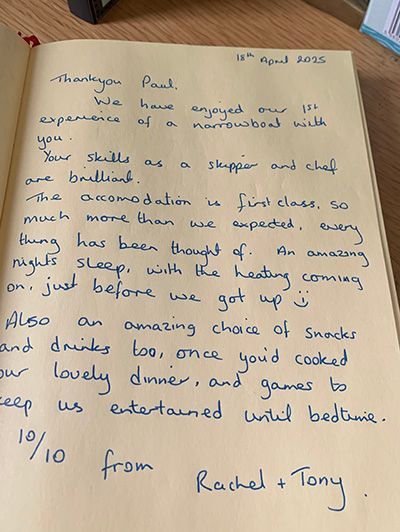 18th April 2025
Thankyou Paul.
We have enjoyed our 1st
experience of a narrowboat with
you.
Your skills as a skipper and chef
are brilliant.
The accomodation is first class, so
much more than we expected, every
thing has been thought of. An amazing
nights sleep, with the heating coming
on, just before we got up :)
Also an amazing choice of snacks
and drinks too, once you'd cooked
our lovely dinner, and games to
keep us entertained until bedtime.
10/10 from Rachel + Tony.